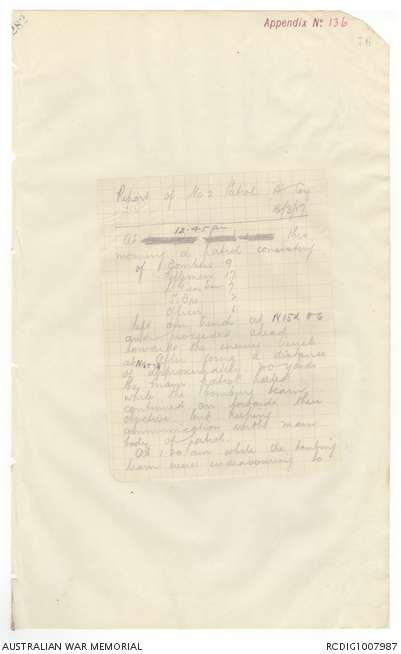 282
Appendix No 136
Report of No 2 Patrol A Coy
8/3/17
12.45 pm
At this
morning a patrol consisting
of Bombers 9
Riflemen 17
L. Gun 7
Officer 1
left our trench at N15d 8.6
and proceeded ahead
towards the enemy trench
at After going a distance
of approximately 70 yards
the main patrol halted
while the bombing team
continued on towards their
objective but keeping
communication with main
body of patrol.
At 1.20 am while the bombing
team were endeavouring to
AUSTRALIAN WAR MEMORIAL
RCDIG1007987